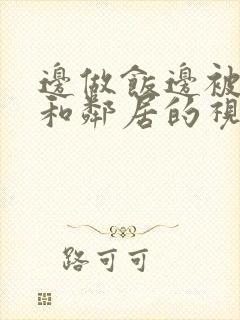 邊做飯邊被
和鄰居的視
路可可